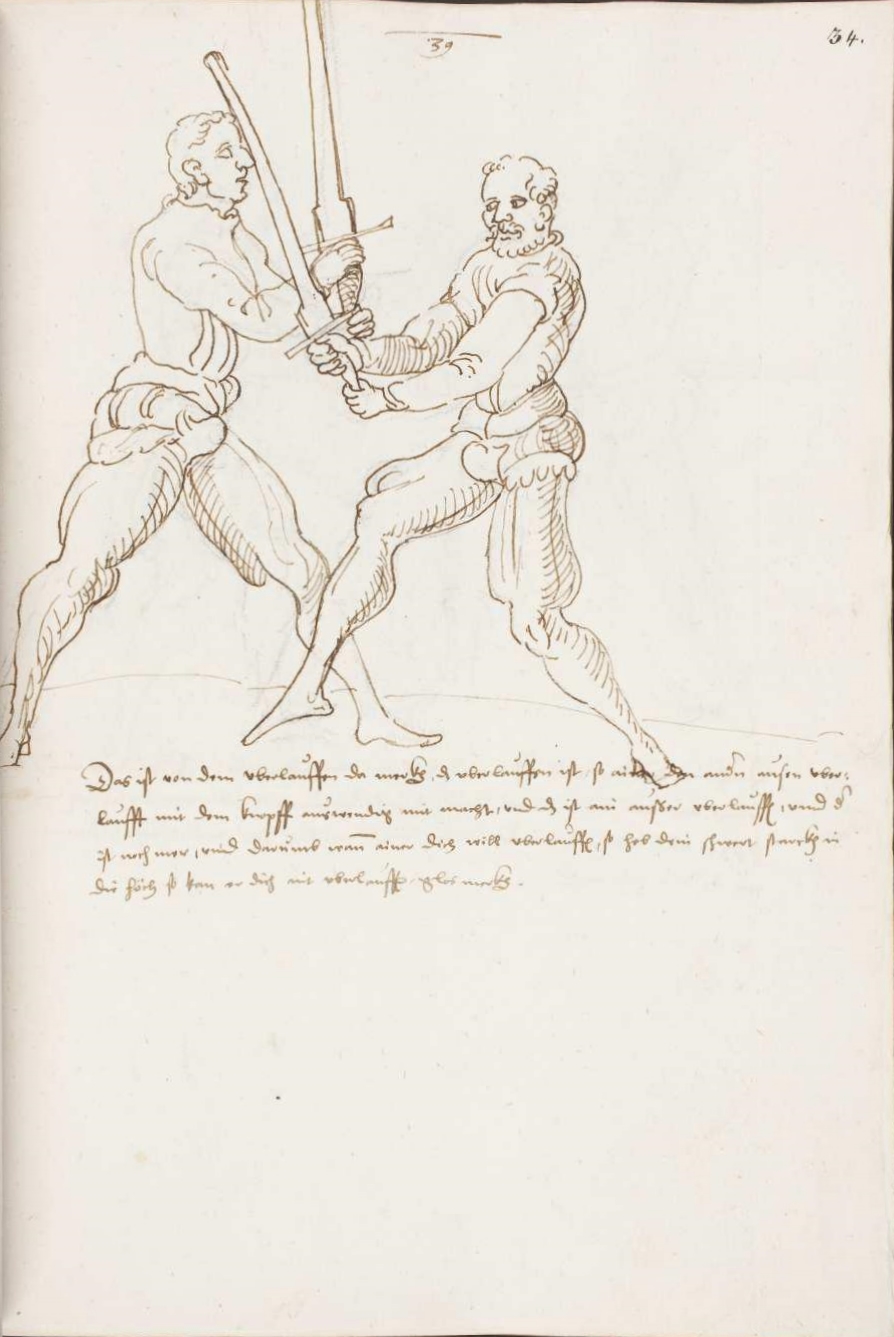 39
34.
Das ist von dem vberlauffen da merkh, dz vberlauffen ist, so ainer den andern ausen vber-
laufft mit dem knopff auswendig mit macht, vnd dz ist ain ausser vberlauffen, vnd der
ist noch mer, vnd darumb wann ainer dich will vberlauffen, so heb dein schwert starckh in
die höch so kan er dich nit vberlauffen glos merkh.